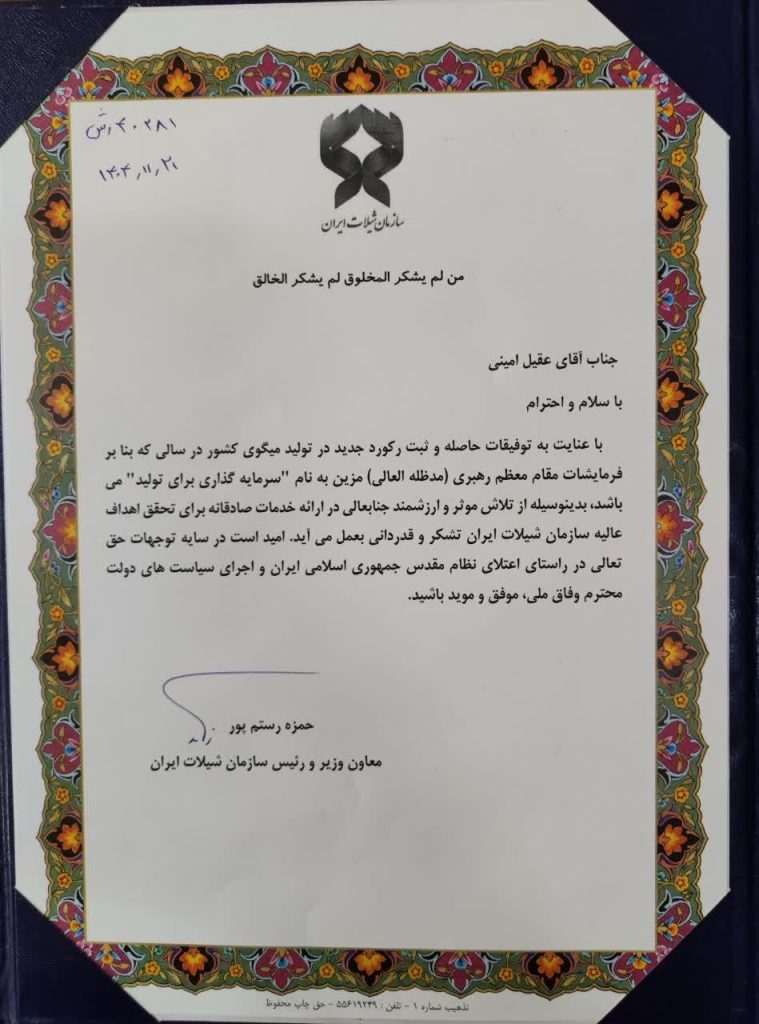 ۴۰۲۸۱رش
۱۴۰۴٫۱۱٫۲۱
سازمان شیلات ایران
من لم یشکر المخلوق لم یشکر الخالق
جناب آقای عقیل امینی
با سلام و احترام
با عنایت به توفیقات حاصله و ثبت رکورد جدید در تولید میگوی کشور در سالی که بنا بر
فرمایشات مقام معظم رهبری (مدظله العالی) مزین به نام "سرمایه گذاری برای تولید" می
باشد، بدینوسیله از تلاش موثر و ارزشمند جنابعالی در ارائه خدمات صادقانه برای تحقق اهداف
عالیه سازمان شیلات ایران تشکر و قدردانی بعمل می آید. امید است در سایه توجهات حق
تعالی در راستای اعتلای نظام مقدس جمهوری اسلامی ایران و اجرای سیاست های دولت
محترم وفاق ملی، موفق و موید باشید.
حمزه رستم پور
معاون وزیر و رئیس سازمان شیلات ایران
تذهیب شماره ۱ - تلفن : ۵۵۶۱۹۲۴۹ - حق چاپ محفوظ